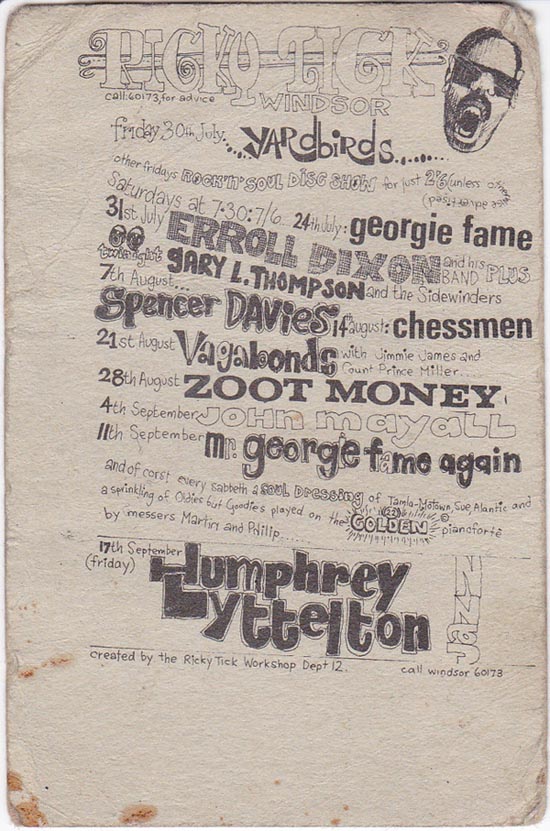 RICKY TICK
call:60173, for advice
WINDSOR
friday 30th July..... YARDbiRds.......
other fridays ROCK'N'SOUL DISC SHOW for just 2'6 (unless otherwise advertised)
Saturdays at 7:30:7/6. 24th July: georgie fame
31st July ERROLL DIXON and his BAND PLUS
twinight GARY L. THOMPSON and the Sidewinders
7th August...
Spencer DAVIES 14th august: chessmen
21st August Vagabonds with Jimmie James and Count Prince Miller....
28th August ZOOT MONEY
4th September JOHN mayALL
11th September Mr. george fame again
and of corst every sabbeth a SOUL DRESSING of Tamla-Motown, Sue, Alantic and
a sprinkling of Oldies but Goodies played on the GOLDEN pianoforte
by messers Martin and Philip......
17th September (friday) Humphrey Lyttelton JAZZ
created by the Ricky Tick Workshop Dept 12.
call windsor 60173